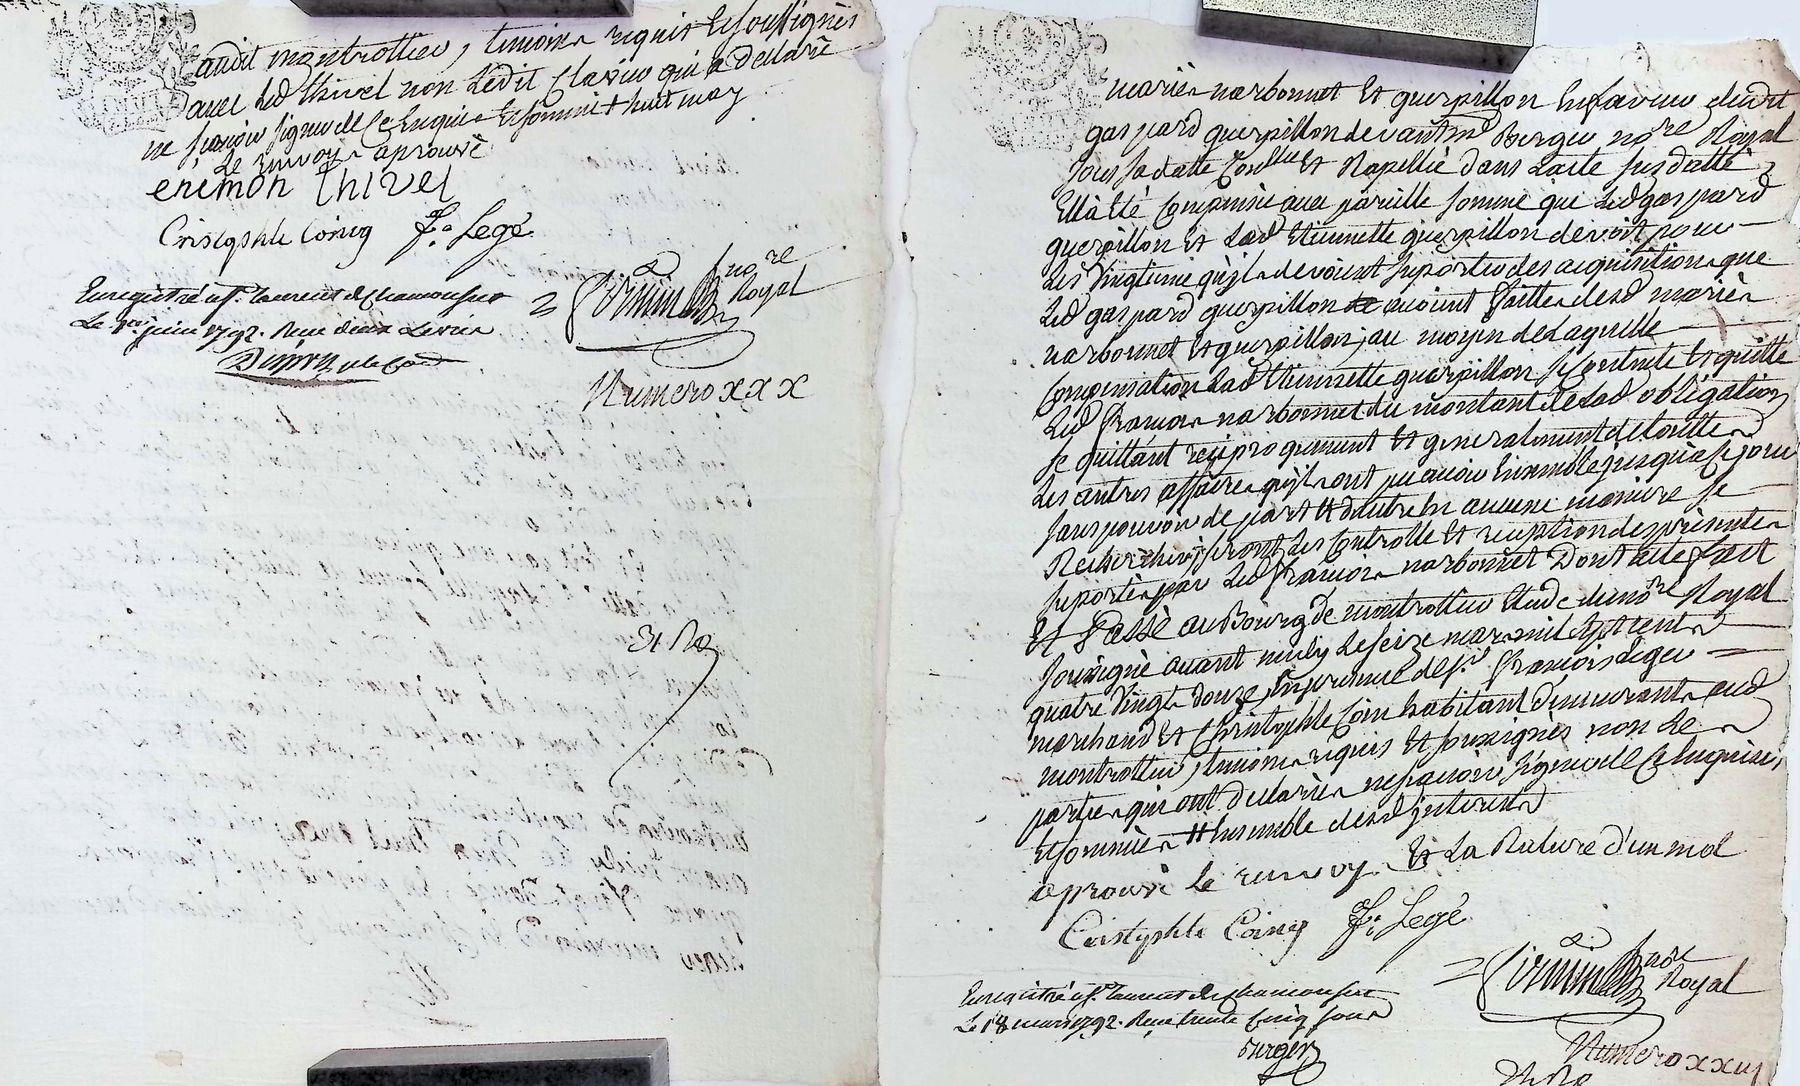 audit montrottier, temoins requis et soussignés
avec led thivel non ledit Clavier qui a declaré
ne sçavoir signer de ce enquis et sommé + huit may
Le renvoy aprouvé
enemon thivel
Cristophle Coing f.s Legé
Enregistré a St Laurent de Chamousset
Le 1er juin 1792. Reçu deux Livres
nore
Royal
Numero xxx
mariés narbonnet Et guerpillon En faveur dudit
gaspard guerpillon devant me Berger nore Royal
sous sa datte Conllée Et Rapellée dans l'acte susdatté
Ella Eté Compensée avec pareille somme que Led gaspard
guerpillon Et Lad Etiennette guerpillon devoit pour
Les vingtieme qu'ils devoient suporter des acquisitions que
Led gaspard guerpillon avoient faittes desd mariés
narbonnet Et guerpillon, au moyen de Laquelle
Compensation Lad Etiennette guerpillon se Contente Et quitte
Led francois narbonnet du montant de Lad obligation
se quittant reciproquement Et generalement de toutes
Les autres affaires qu'ils ont pu avoir Ensemble jusqu'a Ce jour
sans pouvoir de part Et d'autre En aucune maniere se
Rechercher, seront Les Controlle Et reception des presentes
suportés par Led francois narbonnet Dont acte fait
Et Passé au Bourg de montrottier Etude du nore Royal
soussigné avant midy Le seize mars mil sept cent
quatre vingt douze, En presence de sr francois Leger
marchand Et Christophle Coin habitant demeurants aud
montrottier, temoins requis Et soussignés non Les
parties qui ont declarés ne sçavoir signer de Ce Enquises,
Et sommées # Ensemble desd jnterests
aprouvé le renvoy Et La Rature d'un mot
Cristophle Coing f.s Legé
nore
Royal
Enregistré a St Laurent de Chamousset
Le 18 mars 1792. Reçu trente Cinq sous
Numero xxiii